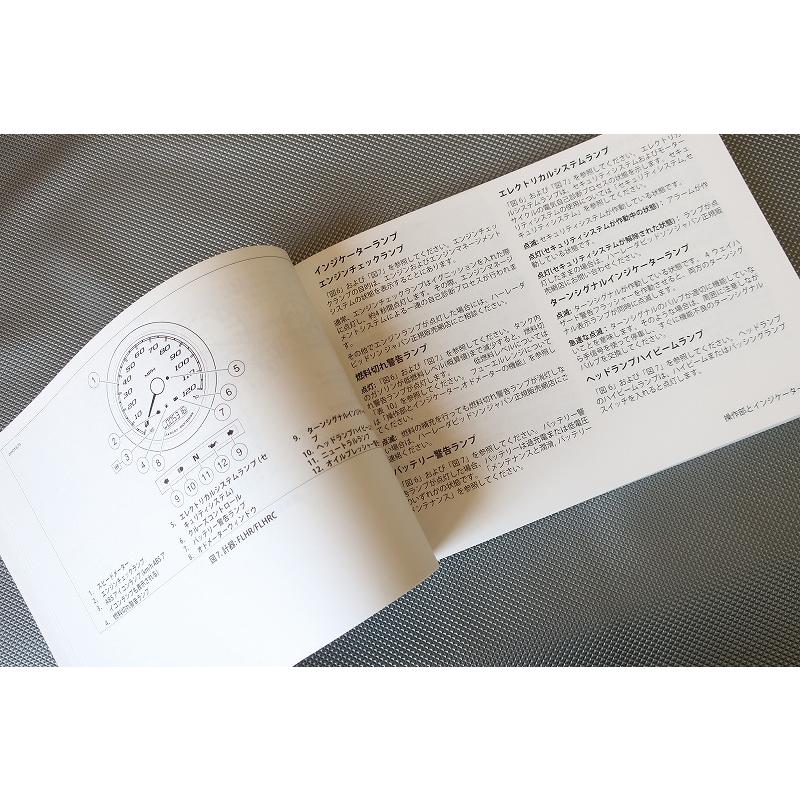 10
20
30
40
50
60
70
80
90
100
110
120
MPH
1
2
3
4
8
7
6
5
N
9 10 11 12 9
1. スピードメーター
2. エンジンチェックランプ
3. ABSアイコンランプ (km/h ABSア
イコンランプも表示される)
4. 燃料切れ警告ランプ
5. エレクトリカルシステムランプ (セ
キュリティシステム)
6. クルーズコントロール
7. バッテリー警告ランプ
8. オドメーターウィンドウ
9. ターンシグナルインジ
10. ヘッドランプハイビー
11. ニュートラルランプ
12. オイルプレッシャー
図7. 計器: FLHR/FLHRC
インジケーターランプ
エンジンチェックランプ
「図6」および「図7」を参照してください。エンジンチェッ
クランプの目的は、エンジンおよびエンジンマネージメント
システムの状態を表示することにあります。
通常、エンジンチェックランプはイグニッションを入れた際
に点灯し、約4秒間点灯します。その際、エンジンマネージ
メントシステムによる一連の自己診断プロセスが行われま
す。
その他でエンジンランプが点灯した場合には、ハーレーダ
ビッドソン ジャパン正規販売網店にご相談ください。
燃料切れ警告ランプ
点灯:「図6」および「図7」を参照してください。タンク内
のガソリンが低燃料レベル(概算値)まで減少すると、燃料切
れ警告ランプが点灯します。低燃料レベルについては、
「表10」を参照してください。フューエルレンジについて
「操作部とインジケーター、オドメーターの機能」を参照し
点滅: 燃料の補充を行っても燃料切れ警告ランプが消灯しな
い場合は、ハーレーダビッドソンジャパン正規販売網店にご
連絡ください。
バッテリー警告ランプ
「図6」および「図7」を参照してください。バッテリー警
告ランプが点灯した場合、バッテリーは過充電または低電圧
のいずれかの状態です。「メンテナンスと潤滑, バッテリー
メンテナンス」を参照してください。
エレクトリカルシステムランプ
「図6」および「図7」を参照してください。エレクトリカ
ルシステムランプは、セキュリティシステムおよびモーター
サイクルの電気自己診断プロセスの状態を示します。セキュ
リティシステムの使用については「セキュリティシステム, セ
キュリティシステム」を参照してください。
点滅: セキュリティシステムが作動している状態です。
点灯(セキュリティシステムが作動中の状態): アラームが作
動している状態です。
点灯(セキュリティシステムが解除された状態): ランプが点
灯したままの場合は、ハーレーダビッドソンジャパン正規販
売網店にお問い合わせください。
ターンシグナルインジケーターランプ
点滅: ターンシグナルが作動している状態です。4ウェイハ
ザード警告フラッシャーを作動させると、両方のターンシグ
ナル表示ランプが同時に点滅します。
急速な点滅: ターンシグナルのバルブが適切に機能していな
いことを意味します。そのような場合は、周囲に注意しなが
ら手信号を使って停車し、すぐに機能不良のターンシグナル
バルブを交換してください。
ヘッドランプハイビームランプ
「図6」および「図7」を参照してください。ヘッドランプ
のハイビームランプは、ハイビームまたはパッシングランプ
スイッチを入れると点灯します。
操作部とインジケーター